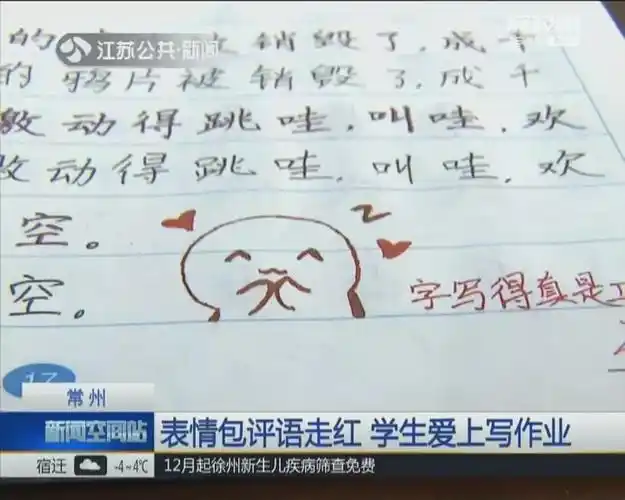 江苏公共·新闻
的 销毁了,成千
的鸦片被销毁了,成千
激动得跳哇,叫哇,欢
激动得跳哇,叫哇,欢
空。
空。
字写得真是
17
常州
新闻空间站
表情包评语走红 学生爱上写作业
宿迁 -4~4℃ 12月起徐州新生儿疾病筛查免费